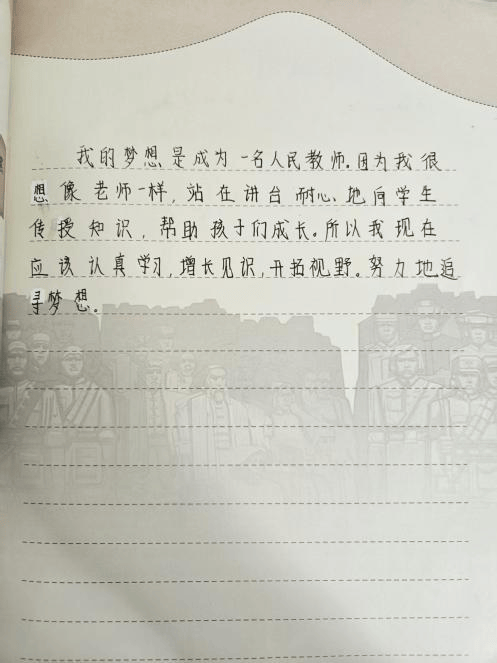 我的梦想是成为一名人民教师.因为我很
想像老师一样,站在讲台耐心、地向学生
传授知识,帮助孩子们成长。所以我现在
应该认真学习,增长见识,开拓视野。努力地追
寻梦想。